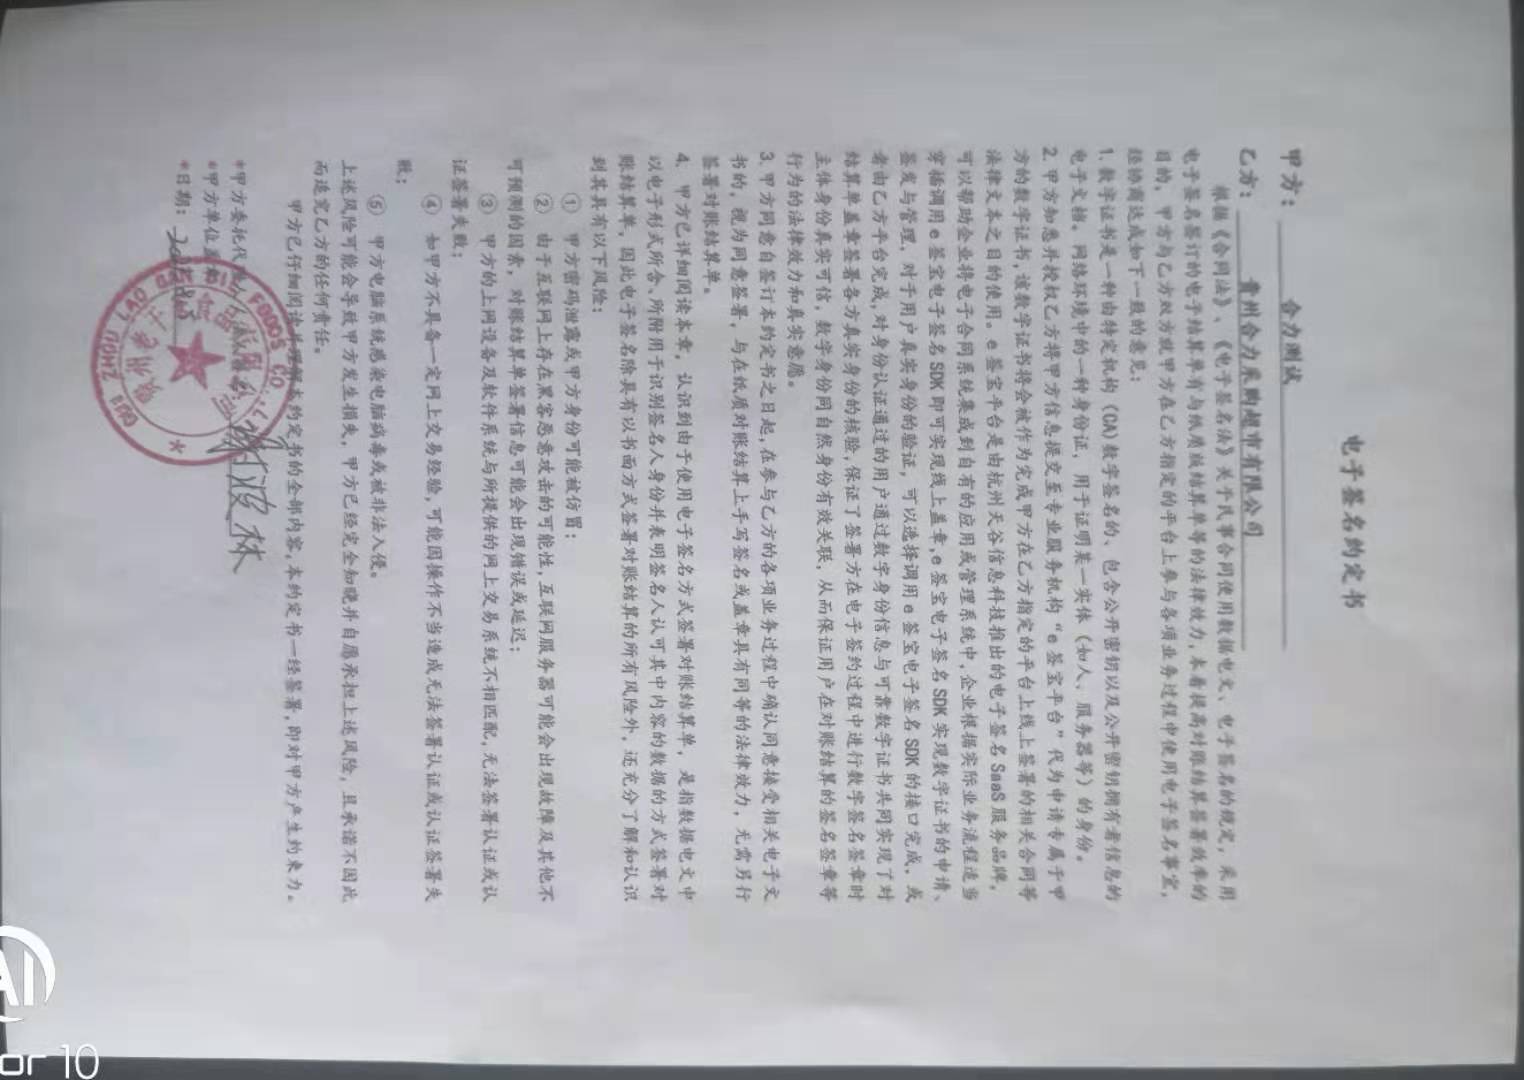 电子签名约定书
甲方： 合力测试
乙方： 贵州合力采购超市有限公司
根据《合同法》、《电子签名法》关于民事合同使用数据电文、电子签名的规定，采用
电子签名签订的电子结算单有与纸质版结算单等的法律效力，本着提高对账结算签署效率的
目的，甲方与乙方双方就甲方在乙方指定的平台上参与各项业务过程中使用电子签名事宜，
经协商达成如下一致的意见：
1. 数字证书是一种由特定机构（CA)数字签名的、包含公开密钥以及公开密钥拥有者信息的
电子文档。网络环境中的一种身份证，用于证明某一实体（如人、服务器等）的身份。
2. 甲方知悉并授权乙方将甲方信息提交至专业服务机构“e签宝平台”代为申请专属于甲
方的数字证书，该数字证书将会被作为完成甲方在乙方指定的平台上线上签署的相关合同等
法律文本之目的使用。e签宝平台是由杭州天谷信息科技推出的电子签名SaaS服务品牌，
可以帮助企业将电子合同系统集成到自有的应用或管理系统中，企业根据实际业务流程适当
穿插调用e签宝电子签名SDK即可实现线上盖章，e签宝电子签名SDK实现数字证书的申请、
签发与管理，对于用户真实身份的验证，可以选择调用e签宝电子签名SDK的接口完成，或
者由乙方平台完成，对身份认证通过的用户通过数字身份信息与可靠数字证书共同实现了对
结算单盖章签署各方真实身份的核验，保证了签署方在电子签约过程中进行数字签名签章时
主体身份真实可信，数字身份同自然身份有效关联，从而保证用户在对账结算的签名签章等
行为的法律效力和真实意愿。
3. 甲方同意自签订本约定书之日起，在参与乙方的各项业务过程中确认同意接受相关电子文
书的，视为同意签署，与在纸质对账结算上手写签名或盖章具有同等的法律效力，无需另行
签署对账结算单。
4. 甲方已详细阅读本章，认识到由于使用电子签名方式签署对账结算单，是指数据电文中
以电子形式所含、所附用于识别签名人身份并表明签名人认可其中内容的数据的方式签署对
账结算单，因此电子签名除具有以书面方式签署对账结算的所有风险外，还充分了解和认识
到其具有以下风险：
① 甲方密码泄露或甲方身份可能被仿冒；
② 由于互联网上存在黑客恶意攻击的可能性，互联网服务器可能会出现故障及其他不
可预测的因素，对账结算单签署信息可能会出现错误或延迟；
③ 甲方的上网设备及软件系统与所提供的网上交易系统不相匹配，无法签署认证或认
证签署失败；
④ 如甲方不具备一定网上交易经验，可能因操作不当造成无法签署认证或认证签署失
败；
⑤ 甲方电脑系统感染电脑病毒或被非法入侵。
上述风险可能会导致甲方发生损失，甲方已经完全知晓并自愿承担上述风险，且承诺不因此
而追究乙方的任何责任。
甲方已仔细阅读并理解本约定书的全部内容，本约定书一经签署，即对甲方产生约束力。
*甲方委托代理人
*甲方单位盖
*日期：
GUIZHOU LAO FOODS CO.,L
or 10